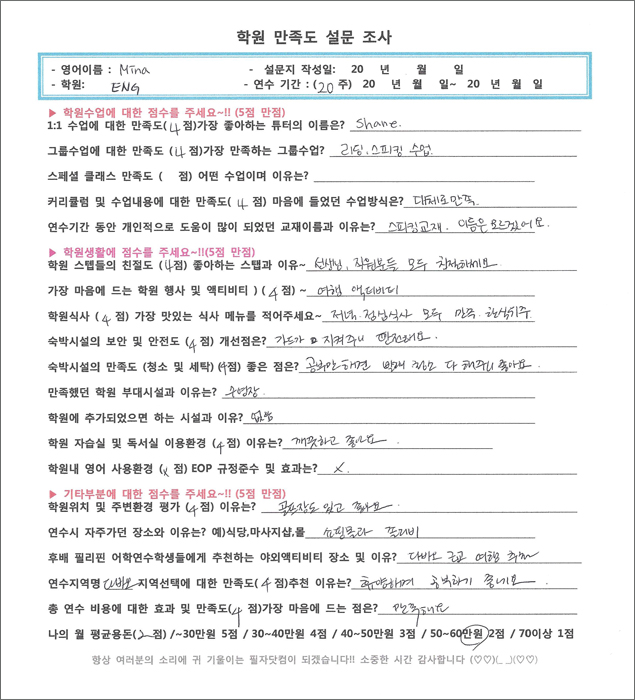 학원 만족도 설문 조사
- 영어이름 : Mina - 설문지 작성일: 20 년 월 일
- 학원: ENG - 연수 기간 : (20 주) 20 년 월 일~ 20 년 월 일
▶ 학원수업에 대한 점수를 주세요~!! (5점 만점)
1:1 수업에 대한 만족도(4점)가장 좋아하는 튜터의 이름은? Shane.
그룹수업에 대한 만족도 (4점)가장 만족하는 그룹수업? 리딩, 스피킹 수업.
스페셜 클래스 만족도 ( 점) 어떤 수업이며 이유는?
커리큘럼 및 수업내용에 대한 만족도( 4 점) 마음에 들었던 수업방식은? 대체로만족.
연수기간 동안 개인적으로 도움이 많이 되었던 교재이름과 이유는? 스피킹교재. 이름은 모르겠어요.
▶ 학원생활에 점수를 주세요~!!(5점 만점)
학원 스텝들의 친절도 (4점) 좋아하는 스탭과 이유~ 선생님, 직원분들 모두 친절하세요
가장 마음에 드는 학원 행사 및 액티비티 ) (4점) ~ 여행 액티비티
학원식사 ( 4 점) 가장 맛있는 식사 메뉴를 적어주세요~ 저녁. 점심식사 모두 만족. 한식위주
숙박시설의 보안 및 안전도 (4 점) 개선점은? 가드가 지켜주니 안전해요.
숙박시설의 만족도 (청소 및 세탁) (4점) 좋은 점은? 공부만 하면 빨래 청소 다 해주니 좋아요.
만족했던 학원 부대시설과 이유는? 수영장
학원에 추가되었으면 하는 시설과 이유? 없음
학원 자습실 및 독서실 이용환경 (4 점) 이유는? 깨끗하고 좋아요.
학원내 영어 사용환경 (x 점) EOP 규정준수 및 효과는? X.
▶ 기타부분에 대한 점수를 주세요~!! (5점 만점)
학원위치 및 주변환경 평가 (4 점) 이유는? 골프장도 있고 좋아요.
연수시 자주가던 장소와 이유는? 예)식당,마사지샵,몰 쇼핑몰과 졸리비
후배 필리핀 어학연수학생들에게 추천하는 야외액티비티 장소 및 이유? 다바오 근교 여행 추천
연수지역명 다바오 지역선택에 대한 만족도( 4 점)추천 이유는? 휴양하며 공부하기 좋네요.
총 연수 비용에 대한 효과 및 만족도(4 점)가장 마음에 드는 점은? 만족해요
나의 월 평균용돈(2점) /~30만원 5점 / 30~40만원 4점 / 40~50만원 3점 / 50~60만원 2점 / 70이상 1점
항상 여러분의 소리에 귀 기울이는 필자닷컴이 되겠습니다!! 소중한 시간 감사합니다 (♡♡)(_ _)(♡♡)